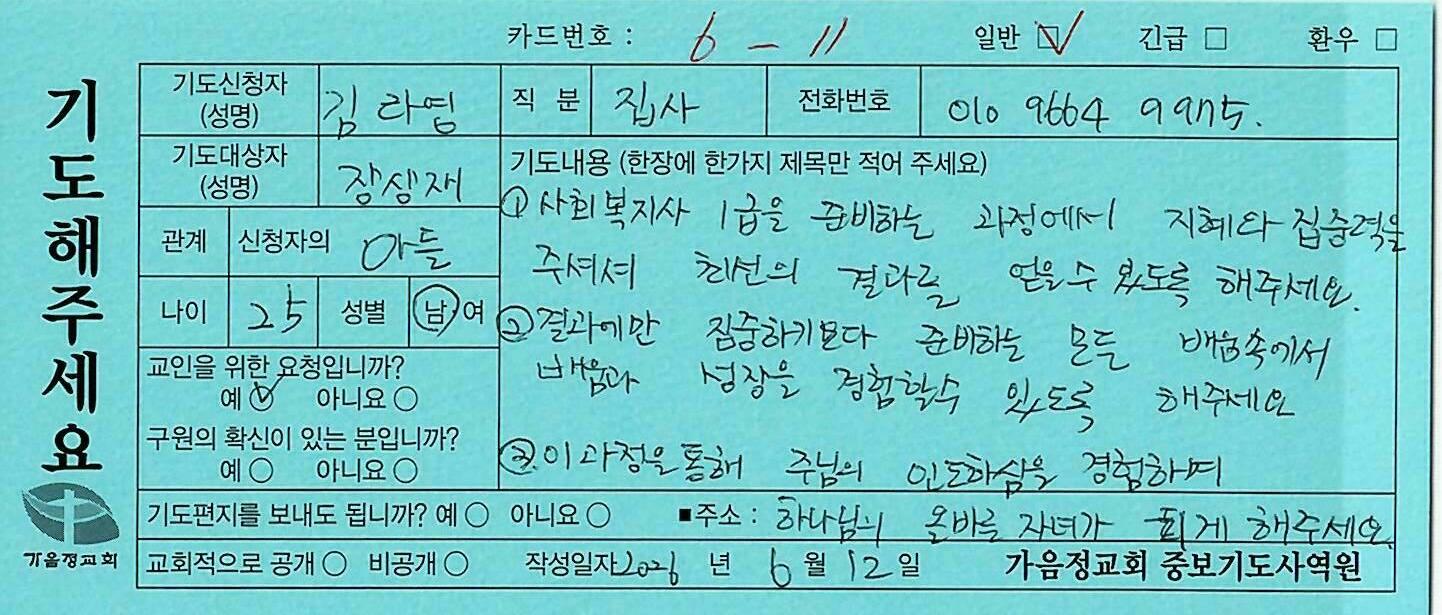 카드번호 : 6 - 11 일반 ☑ 긴급 □ 환우 □
기도해주세요
기도신청자 (성명) 김라엽 직 분 집사 전화번호 010 9664 9975.
기도대상자 (성명) 장생재
관계 신청자의 아들
나이 25 성별 남 여
교인을 위한 요청입니까?
예 ○ 아니요 ○
구원의 확신이 있는 분입니까?
예 ○ 아니요 ○
기도내용 (한장에 한가지 제목만 적어 주세요)
① 사회복지사 1급을 준비하는 과정에서 지혜와 집중력을
주셔셔 최선의 결과를 얻을수 있도록 해주세요.
② 결과에만 집중하기보다 준비하는 모든 배움속에서
배움과 성장을 경험할수 있도록 해주세요
③ 이 과정을통해 주님의 인도하심을 경험하며
하나님의 올바를 자녀가 되게 해주세요.
기도편지를 보내도 됩니까? 예 ○ 아니요 ○ ■주소 :
교회적으로 공개 ○ 비공개 ○ 작성일자 2026 년 6 월 12 일 가음정교회 중보기도사역원
가음정교회